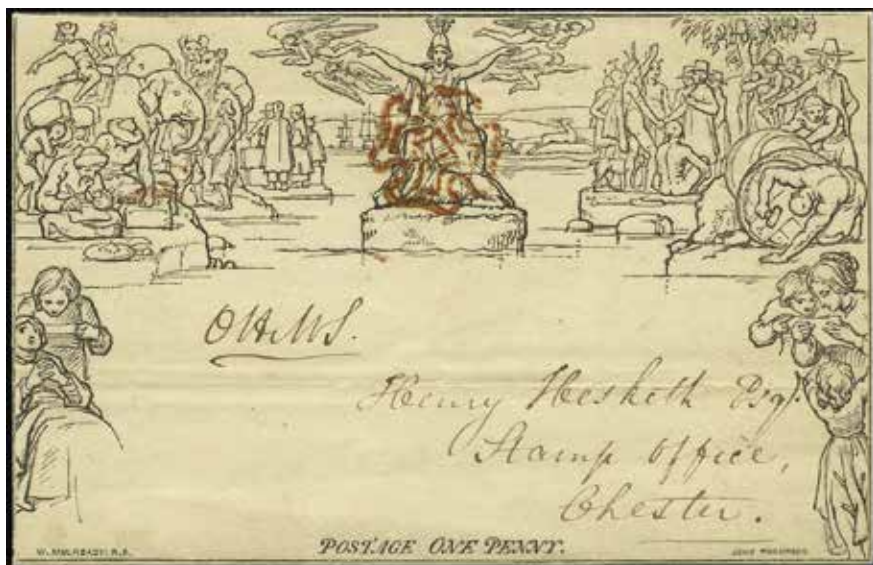 O.H.M.S.
Henry Hesketh Esqr.
Stamp Office,
Chester.
W. MULREADY. R.A.
POSTAGE ONE PENNY.
JOHN THOMPSON